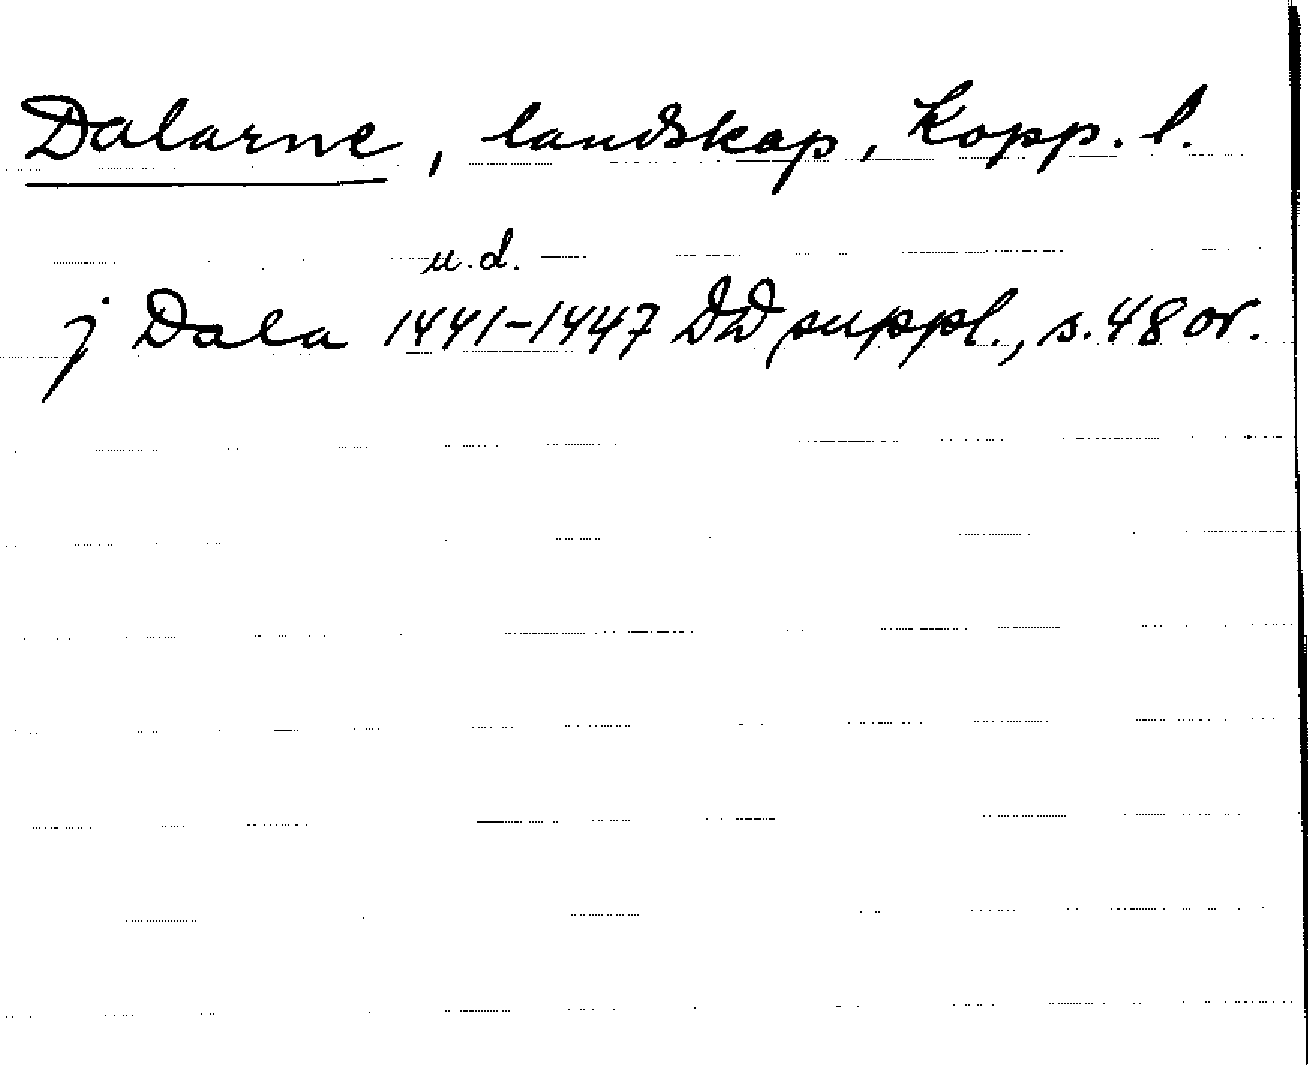 Dalarne, landskap, Kopp. l.
u.d.
j Dala 1441-1447 DD suppl., s. 48 or.